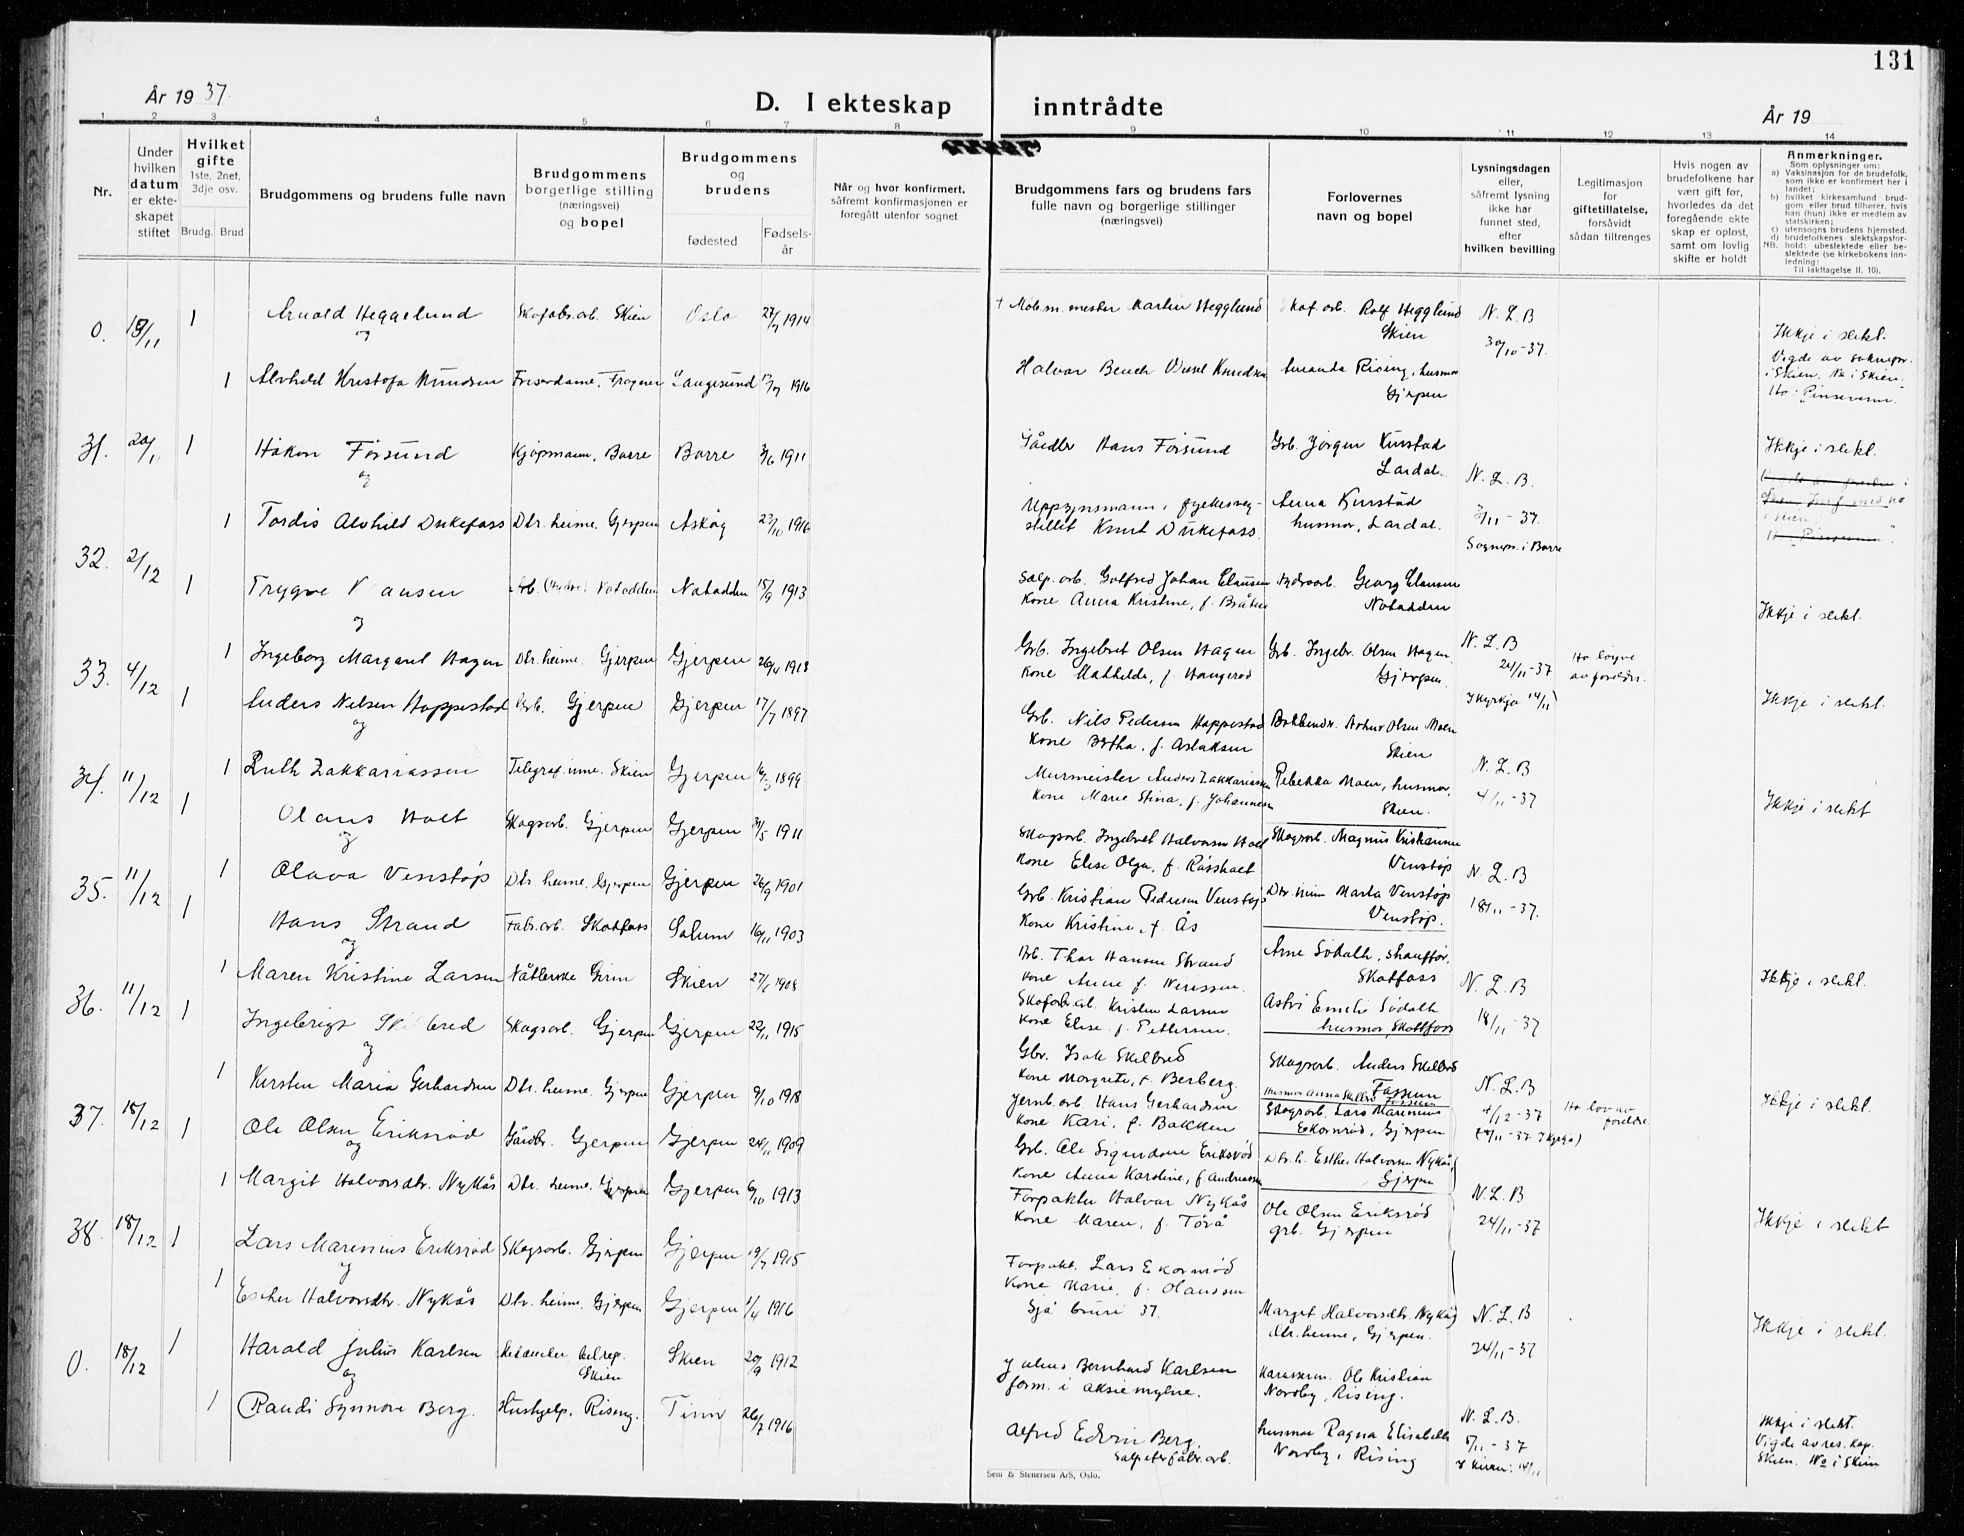 131
År 1937.
D. I ekteskap inntrådte
År 19
1 2 3 4 5 6 7 8 9 10 11 12 13 14
Nr.
Under hvilken datum er ekteskapet stiftet
Hvilket gifte
1ste, 2net, 3dje osv.
Brudg. Brud
Brudgommens og brudens fulle navn
Brudgommens borgerlige stilling (næringsvei) og bopel
Brudgommens og brudens
fødested
Fødselsår
Når og hvor konfirmert, såfremt konfirmasjonen er foregått utenfor sognet
Brudgommens fars og brudens fars fulle navn og borgerlige stillinger (næringsvei)
Forlovernes navn og bopel
Lysningsdagen eller, såfremt lysning ikke har funnet sted, efter hvilken bevilling
Legitimasjon for giftetillatelse, forsåvidt sådan tiltrenges
Hvis nogen av brudefolkene har vært gift før, hvorledes da det foregående ekteskap er opløst, samt om lovlig skifte er holdt
Anmerkninger.
Som oplysninger om:
a) Vaksinasjon for de brudefolk, som ikke er konfirmert her i landet;
b) hvilket kirkesamfund brudgom eller brud tilhører, hvis han (hun) ikke er medlem av statskirken;
c) utensogns brudens hjemsted.
d) brudefolkenes slektskapsforhold: ubeslektede eller beslektede (se kirkebokens innledning:
NB.
Til iakttagelse II. 10).
0. 19/11 1 Arnold Heggelund Skofabr.arb. Skien Oslo 27/7 1914 † Møb.m. mester Martin Hegglund Skof. arb. Rolf Hegglund Skien N. L. B 30/10-37. Ikkje i slekt.
og
1 Alvhild Kristofa Knudsen Friserdame, Langesund 1916 Halvor Bench Knudsen Amanda Rising, husmor Gjerpen Vigde av sokneprest i Skien. No i Skien. Ho: Pinseven.
31. 20/11 1 Håkon Førsund Kjøpmann, Borre Borre 3/6 1911 Hans Førsund Grb. Jørgen Kurstad Lardal. N. L. B. Ikkje i slekt.
og
1 Tordis Alvhild Dukefoss Dtr. heime. Gjerpen Askøy 23/10 1916 Uppsynsmann i fylkesveg-stellet Knut Dukefoss. Anna Kurstad husmor, Lardal. 3/11-37. Sognepr. i Borre
32. 2/12 1 Trygve Clausen Arb. (Hydro) Notodden Notodden 15/9 1913 Salp. arb. Gotfred Johan Clausen Kone Anna Kristine, f. Bråten Hydroarb. Georg Clausen Notodden Ikkje i slekt.
og
1 Ingeborg Margaret Hagen Dtr. heime. Gjerpen Gjerpen 26/4 1918 Grb. Ingebret Olsen Hagen Kone Mathilde, f. Haugerød Grb. Ingebr. Olsen Hagen, Gjerpen. N. L. B 24/11-37 I kyrkja 14/11 Ho løyve av foreldr.
33. 4/12 1 Anders Nilsen Hoppestad Arb. Gjerpen Gjerpen 17/7 1897 Grb. Nils Pedersen Hoppestad Kone Bertha, f. Aslaksen Bokbindr. Arthur Olsen Moen Skien Ikkje i slekt.
og
1 Ruth Zakkariassen Telegraf.inne. Skien Gjerpen 16/3 1899 Murmeister Anders Zakkariassen Kone Marie Stina, f. Johannesen Rebekka Moen, husmor, Skien. N. L. B 4/11-37
34. 11/12 1 Olaus Holt Skogsarb. Gjerpen Gjerpen 31/5 1911 Skogsarb. Ingebret Halvorsen Holt Kone Elise Olga, f. Råsholt Skogsarb. Magnus Kristiansen Venstøp Ikkje i slekt
og
1 Olava Venstøp Dtr. heime, Gjerpen Gjerpen 26/9 1901 Grb. Kristian Pedersen Venstøp Kone Kristine, f. Ås Dtr. heim Marta Venstøp Venstøp. N. L. B 18/11-37.
35. 11/12 1 Hans Strand Fabr. arb. Skotfoss Solum 16/11 1903 Arb. Thor Hansen Strand Kone Anne f. Nerissen. Arne Sødalh, shauffør. Skotfoss Ikkje i slekt.
og
1 Maren Kristine Larsen Skien 27/6 1908 Skofabr. arb. Kristen Larsen Kone Elise f. Pettersen. Astri Emelie Sødalh husmor, Skotfoss N. L. B 18/11-37
36. 11/12 1 Ingebrigt Skilbred Skogsarb. Gjerpen Gjerpen 22/11 1915 Gbr. Isak Skilbred Kone Margrete, f. Berberg. Skogsarb. Anders Skilbred Fossum Ikkje i slekt.
og
1 Kirsten Maria Gerhardsen Dtr. heime. Gjerpen Gjerpen 9/10 1918 Jernb. arb. Hans Gerhardsen Kone Kari, f. Bakken Husmor Anna Skilbred Fossum N. L. B 4/12-37 Ho lov av foreldre
37. 18/12 1 Ole Olsen Eriksrød Gårdbr. Gjerpen Gjerpen 24/11 1909 Grb. Ole Sigurdsen Eriksrød Kone Anna Karoline, f. Andreassen Skogsarb. Lars Marenius Ekornrød, Gjerpen Ikkje i slekt
og
1 Margit Halvorsdtr. Nykås Dtr. heime. Gjerpen Gjerpen 6/10 1913 Forpakter Halvor Nykås Kone Maren, f. Torå Dtr. h. Esther Halvorsen Nykås, Gjerpen N. L. B 24/11-37
38. 18/12 1 Lars Marenius Eriksrød Skogsarb. Gjerpen Gjerpen 19/7 1915 Forpakt. Lars Ekornrød Kone Marie, f. Olaussen Ole Olsen Eriksrød grb. Gjerpen Ikkje i slekt.
og
1 Esther Halvorsdtr. Nykås Dtr. heime. Gjerpen Gjerpen 1/4 1916 Sjå bruri 37. Margit Halvorsdtr. Nykås dtr. heime, Gjerpen. N. L. B 24/11-37
0. 18/12 1 Harald Julius Karlsen Skien Skien 20/9 1912 Julius Bernhard Karlsen form. i aksiemylne. Ole Kristian Nordby, Rising. Ikkje i slekt. Vigde av res. kap. Skien. No i Skien
og
1 Randi Synnøve Berg. Hushjelp, Rising. Tinn 26/7 1916 Alfred Edvin Berg. Salpeterfabr.arb. husmor Ragna Elisabeth Nordby, Rising N. L. B. 5/11-37 I kirken: 14/11
Sem & Stenersen A/S, Oslo.